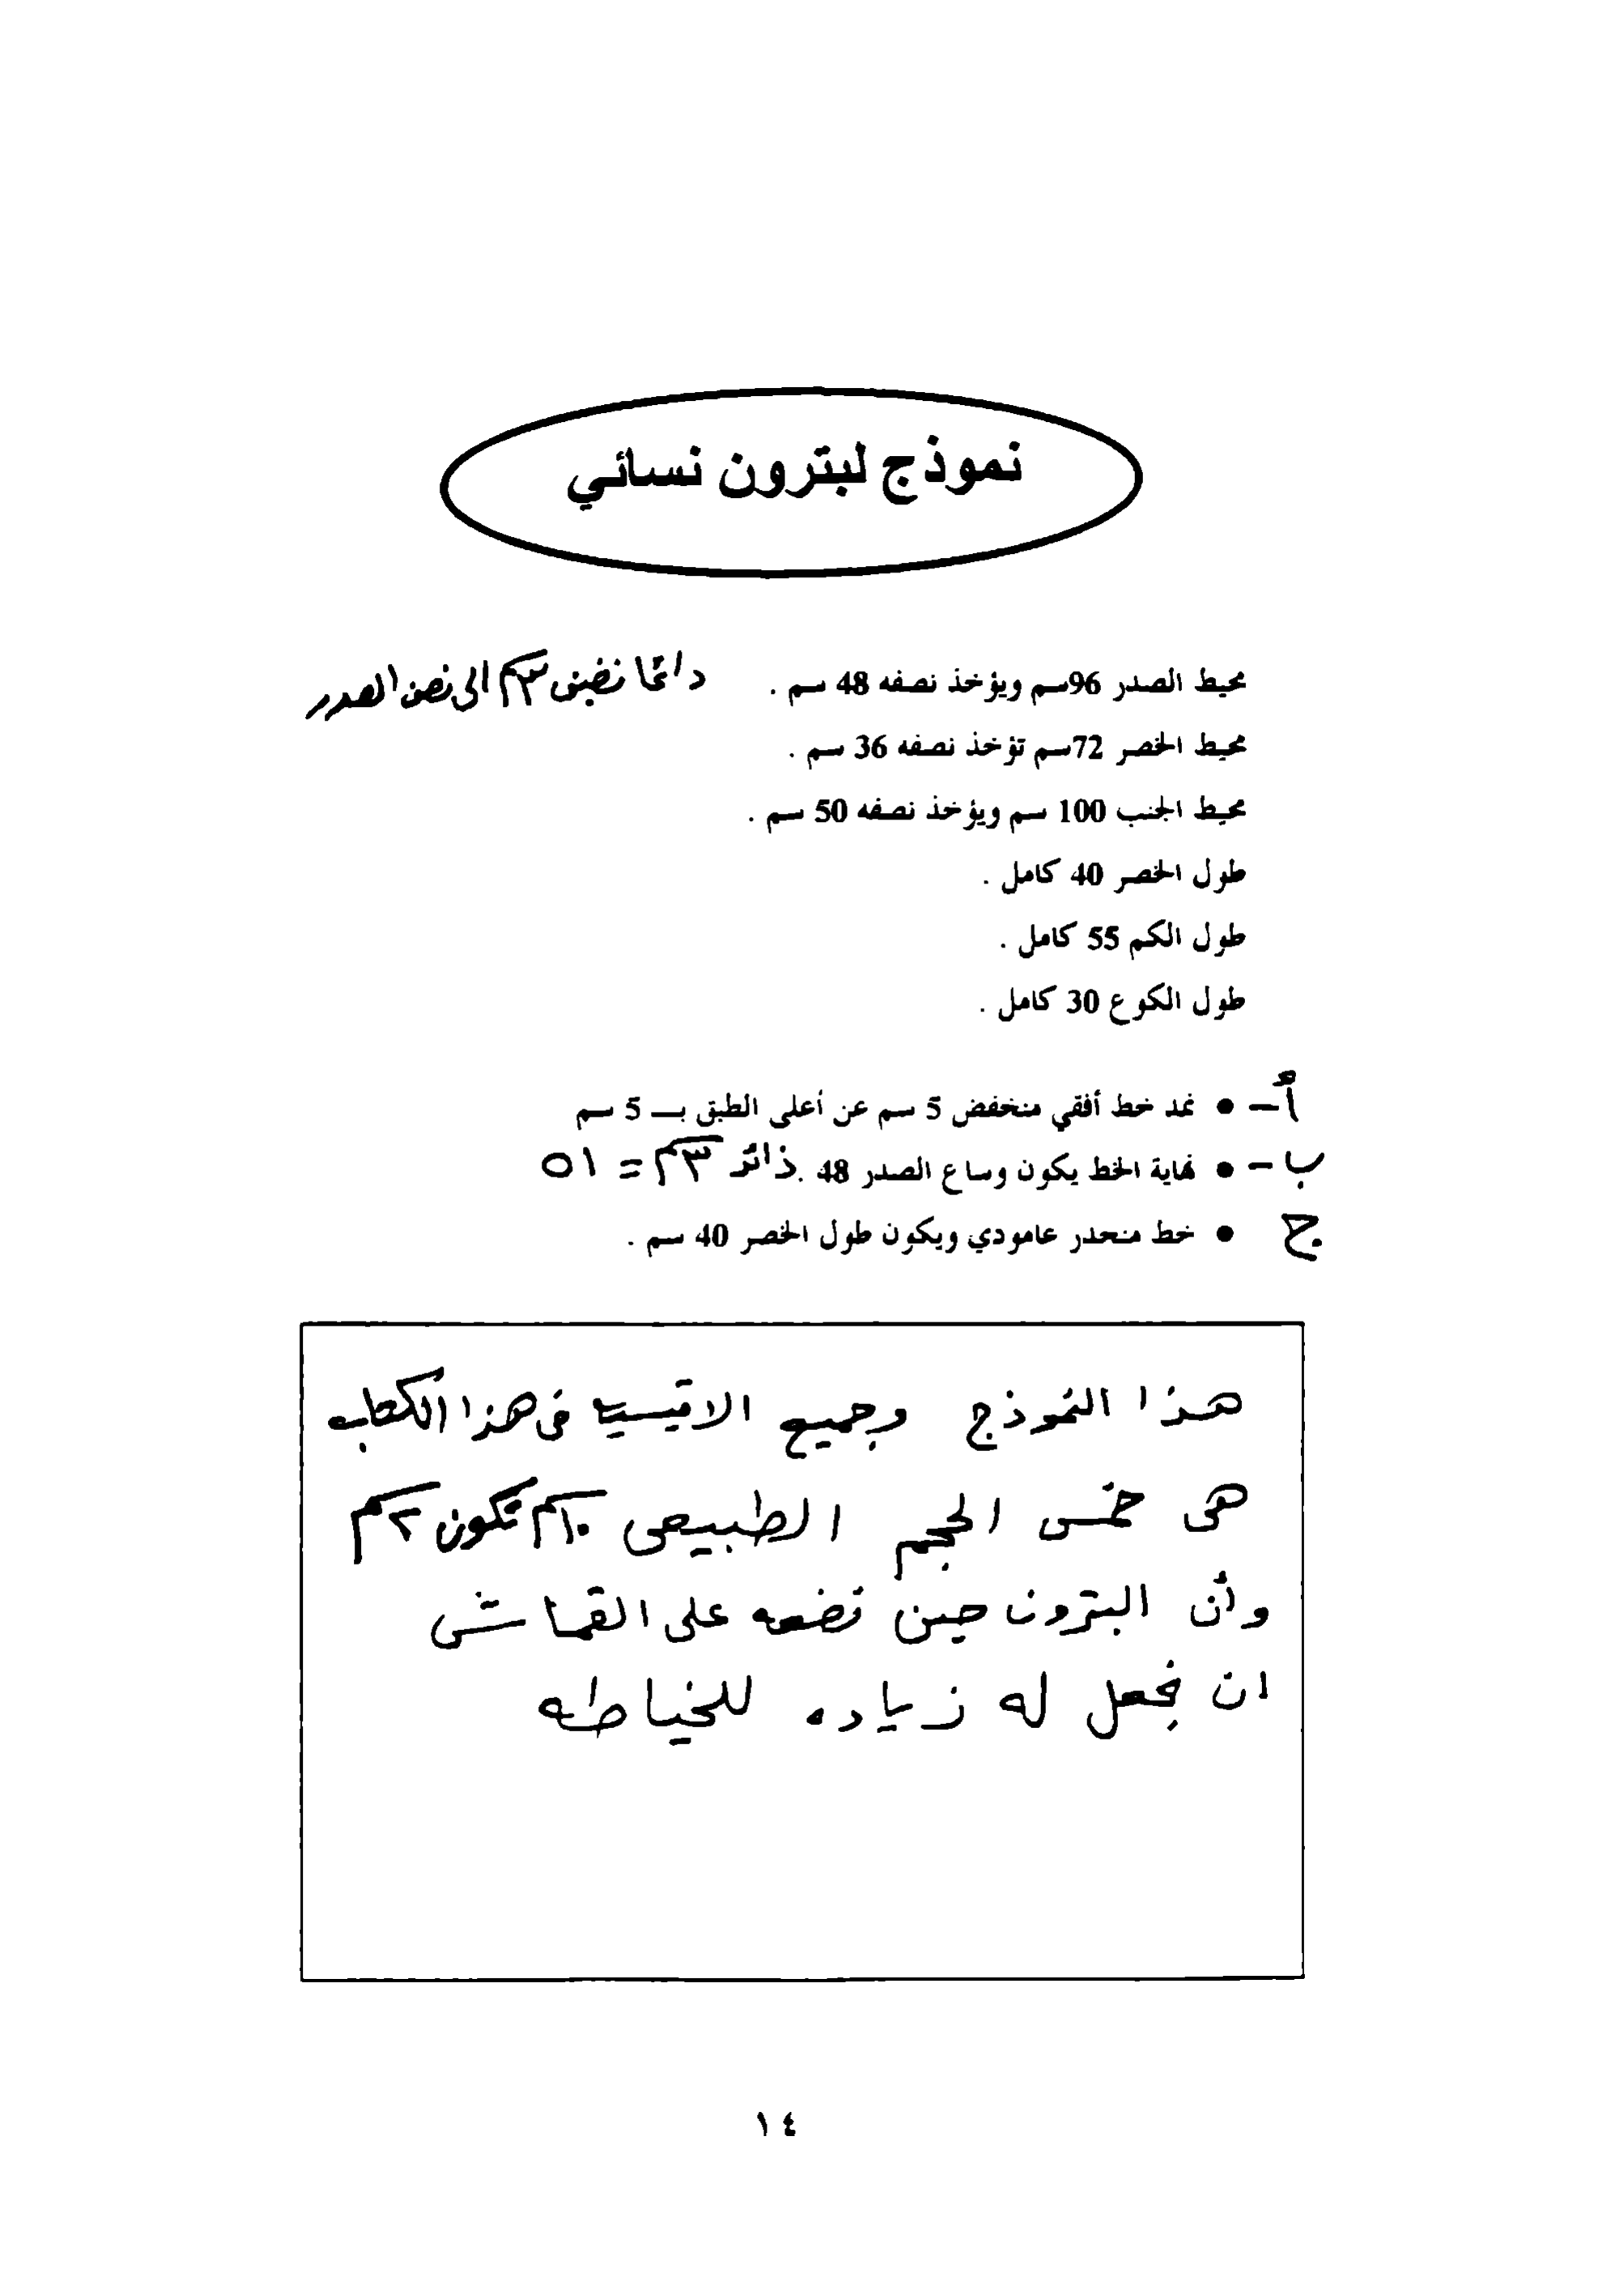 نموذج لبترون نسائي
محيط الصدر 96سم ويؤخذ نصفه 48 سم . دائما نضيف ٣سم الى نصف الصدر
محيط الخصر 72سم تؤخذ نصفه 36 سم .
محيط الجنب 100 سم ويؤخذ نصفه 50 سم .
طول الخصر 40 كامل .
طول الكم 55 كامل .
طول الكوع 30 كامل .
أ - • نمد خط أفقي منخفض 5 سم عن أعلى الطبق بـ 5 سم
ب - • نهاية الخط يكون وساع الصدر 48 . زائد ٣سم = ٥١
ج • خط منحدر عامودي ويكون طول الخصر 40 سم .
هذا النموذج وجميع الاقيسة في هذا الكتاب
هي خمس الحجم الطبيعي ١٠سم تكون ٢سم
وأن البترون حين نضعه على القماش
ان نجعل له زياده للخياطه
١٤